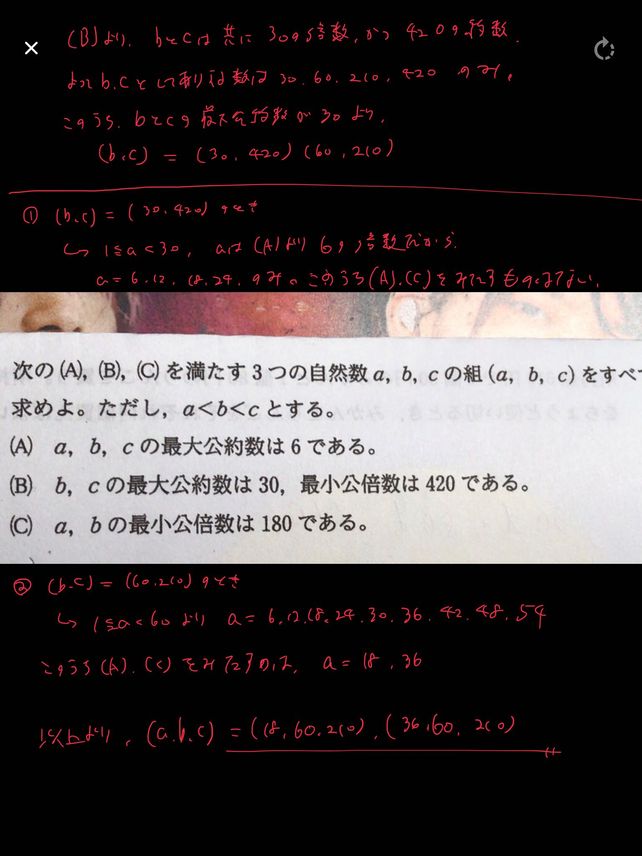 (B)より、bとcは共に30の倍数、かつ420の約数.
よってb.cとしてあり得る数は30.60.210.420のみ。
このうち、bとcの最大公約数が30より、
(b.c) = (30.420)(60.210)
① (b.c) = (30.420)のとき
↳ 1≦a<30、aは(A)より6の倍数だから.
a=6.12.18.24.のみ。このうち(A).(C)をみたすものはない.
次の(A), (B), (C)を満たす3つの自然数a, b, cの組(a, b, c)をすべ
求めよ。ただし, a<b<cとする。
(A) a, b, cの最大公約数は6である。
(B) b, cの最大公約数は30, 最小公倍数は420である。
(C) a, bの最小公倍数は180である。
② (b.c) = (60.210)のとき
↳ 1≦a<60より a=6.12.18.24.30.36.42.48.54
このうち(A).(C)をみたすのは、a=18.36
以上より、(a.b.c) = (18.60.210).(36.60.210)